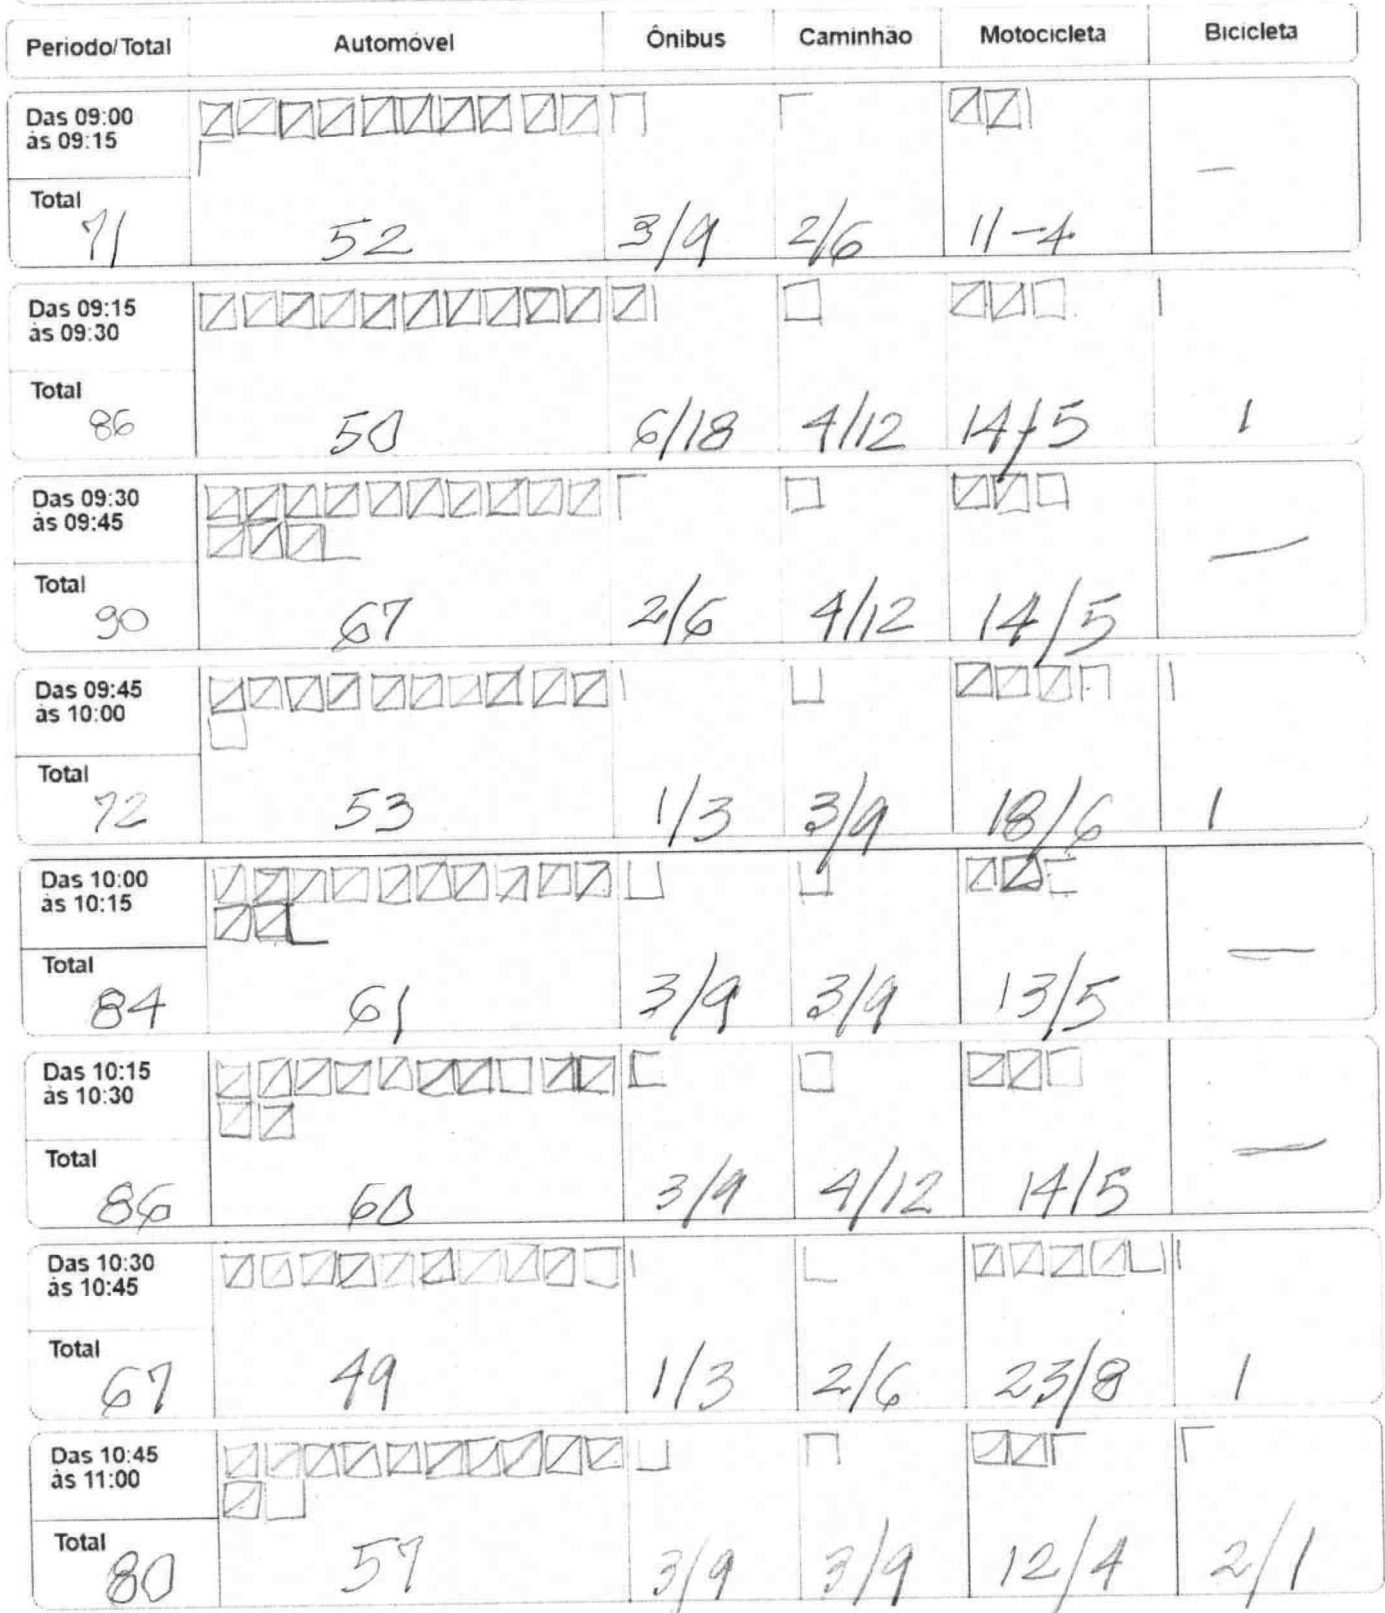 Periodo/Total Automóvel Ônibus Caminhão Motocicleta Bicicleta
Das 09:00
às 09:15
Total
71 52 3/9 2/6 11-4 —
Das 09:15
às 09:30
Total
86 50 6/18 4/12 14/5 1
Das 09:30
às 09:45
Total
90 67 2/6 4/12 14/5 —
Das 09:45
às 10:00
Total
72 53 1/3 3/9 18/6 1
Das 10:00
às 10:15
Total
84 61 3/9 3/9 13/5 —
Das 10:15
às 10:30
Total
86 60 3/9 4/12 14/5 —
Das 10:30
às 10:45
Total
67 49 1/3 2/6 23/8 1
Das 10:45
às 11:00
Total
80 57 3/9 3/9 12/4 2/1